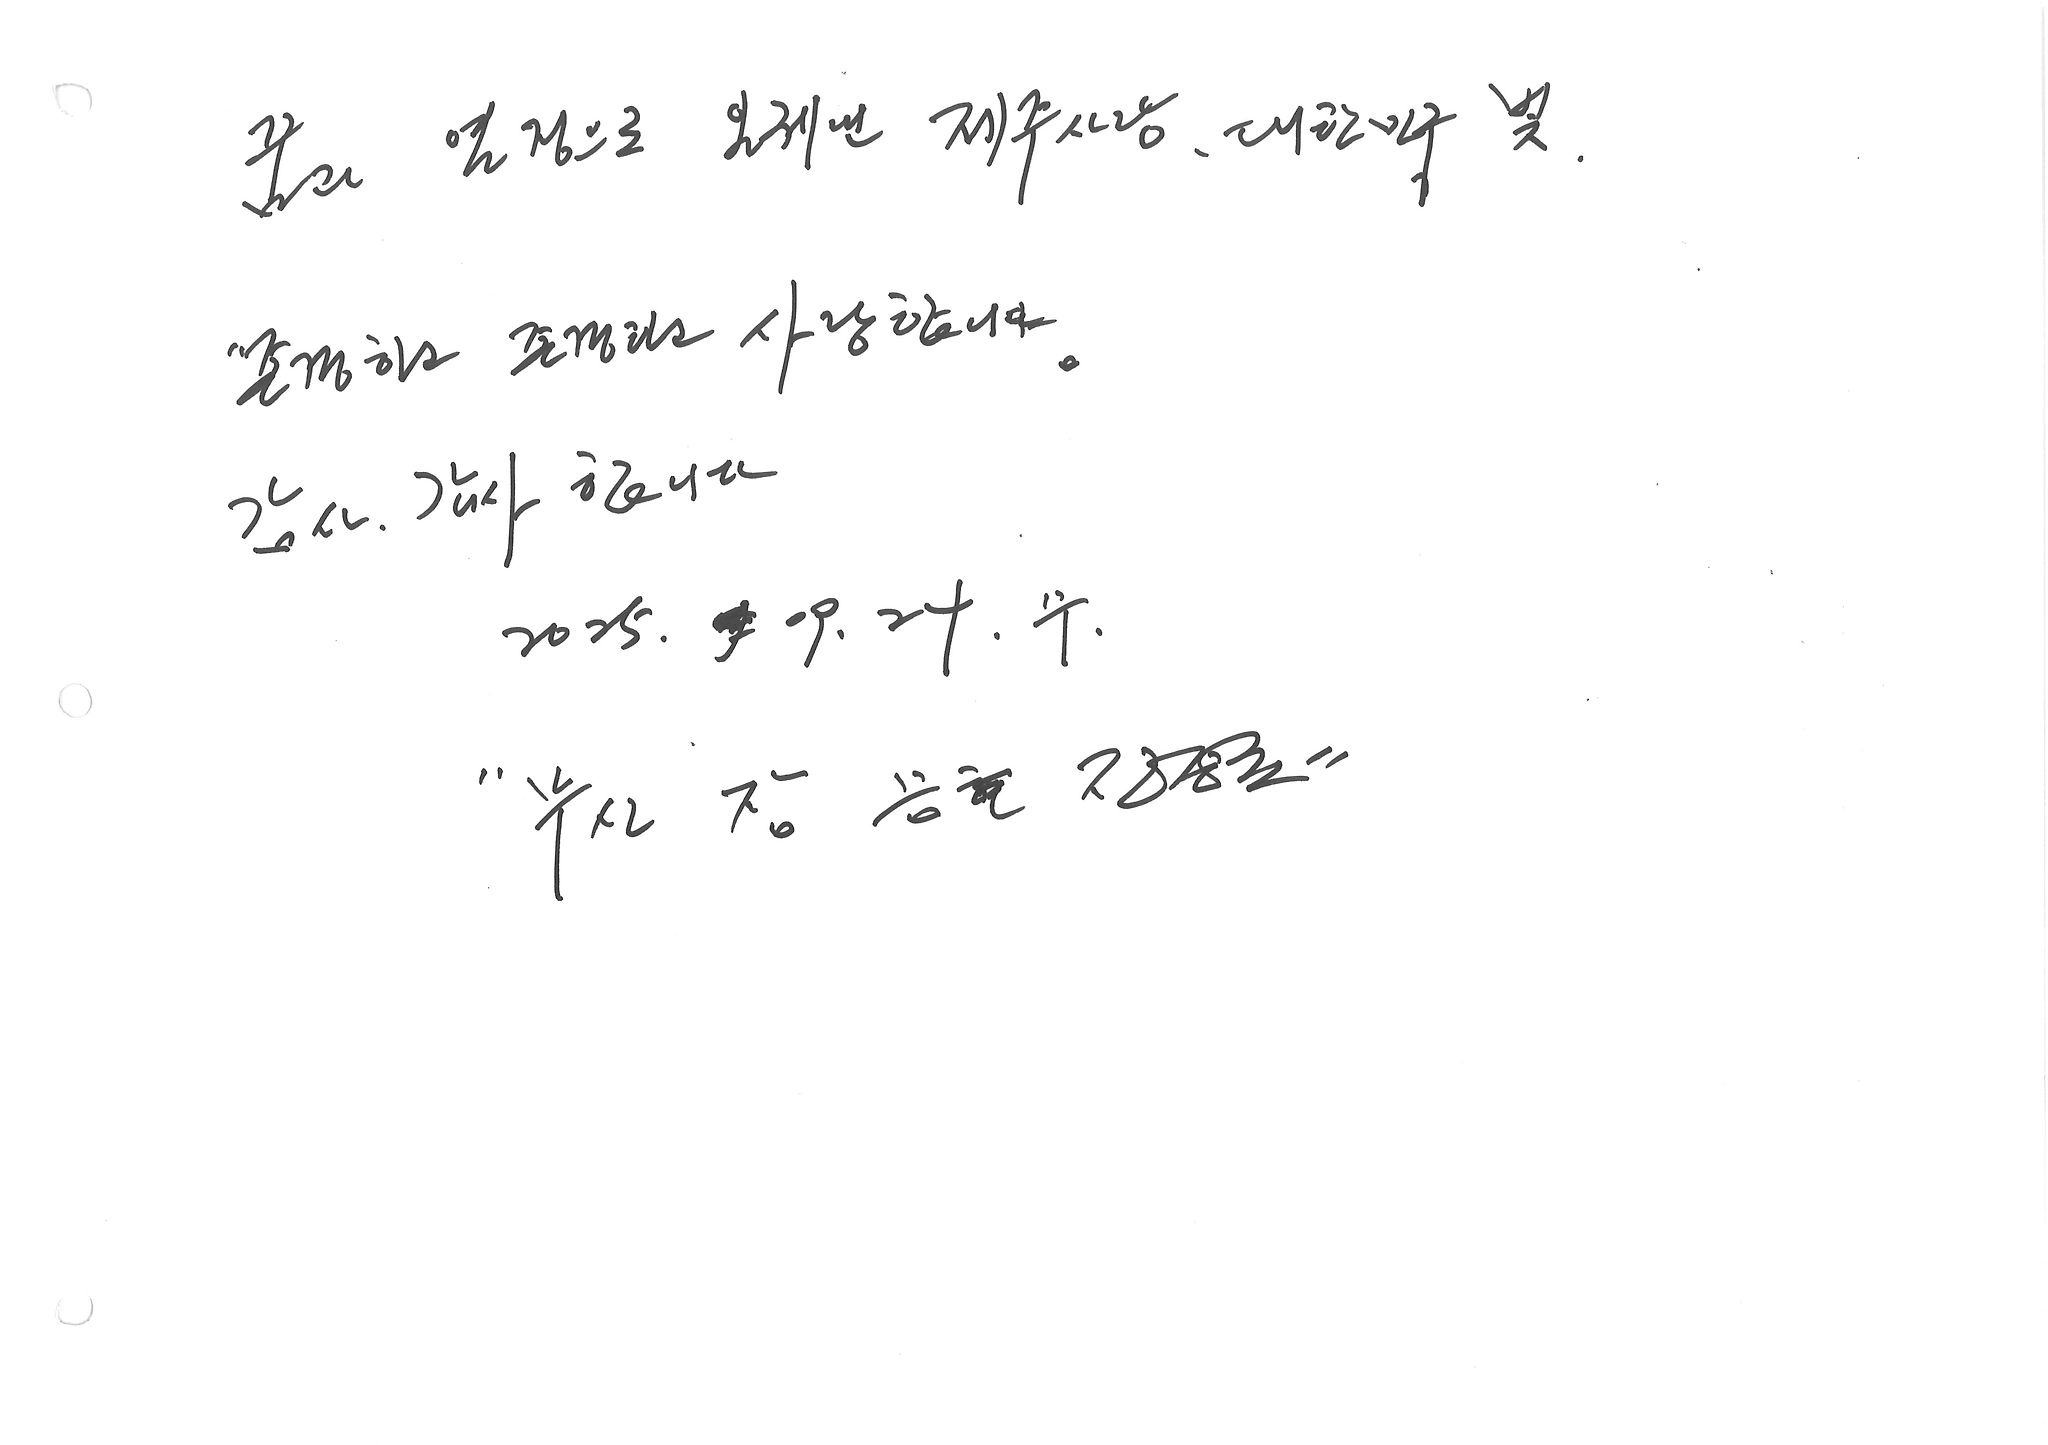 꿈과 열정으로 올레변 제주사랑. 대한민국 빛.
"존경하고 존경하고 사랑합니다.
감사. 감사 합니다
2025. 09. 24. 수.
"부산 장